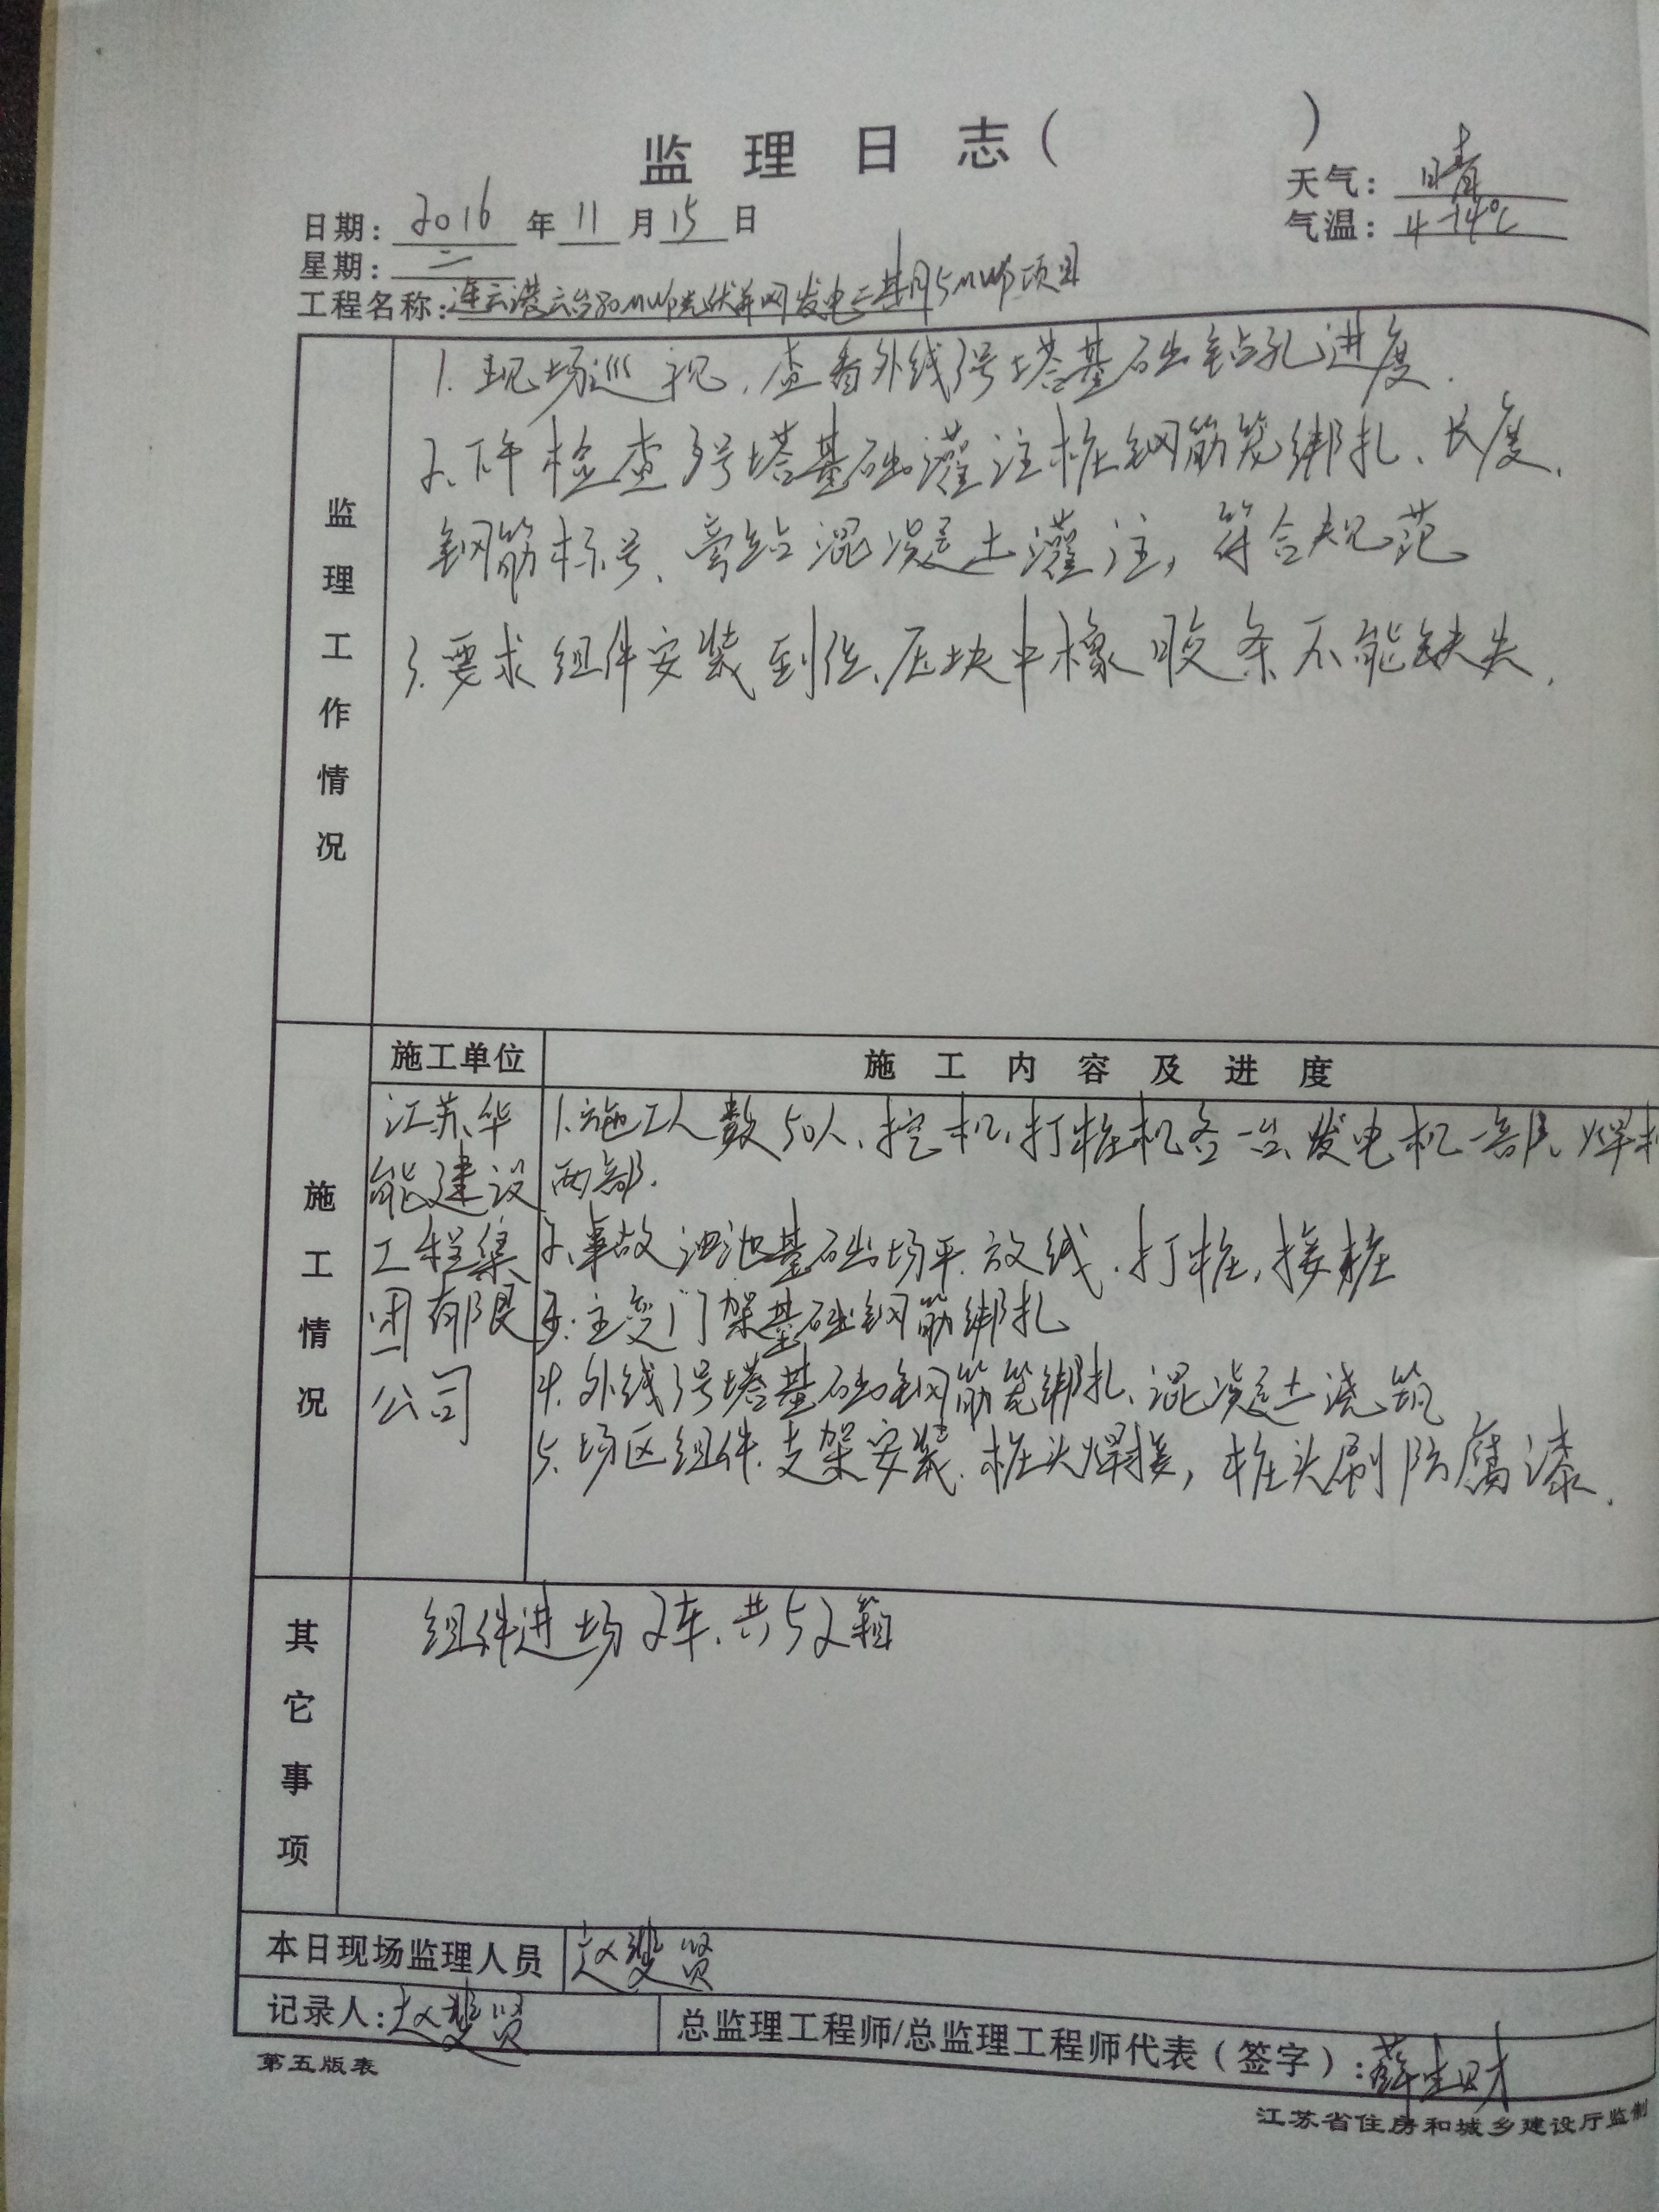 监理日志（ ）
天气：晴
日期：2016年11月15日
气温：4-14℃
星期：二
工程名称：连云港云台80MWp光伏并网发电二期5MWp项目
监理工作情况
1.现场巡视，查看外线3号塔基础钻孔进度.
2、下午检查3号塔基础灌注桩钢筋笼绑扎、长度、
钢筋标号、旁站混凝土灌注，符合规范
3.要求组件安装到位、压块中橡胶条不能缺失.
施工单位 施工内容及进度
施工情况
江苏华
能建设
工程集
团有限
公司
1.施工人数50人、挖机、打桩机各一台、发电机一部、焊机
两部.
2、事故油池基础场平.放线.打桩,接桩
3.主变门架基础钢筋绑扎
4.外线3号塔基础钢筋笼绑扎、混凝土浇筑
5.场区组件.支架安装.桩头焊接，桩头刷防腐漆.
其它事项
组件进场2车、共52箱
本日现场监理人员 赵斐贤
记录人：赵斐贤 总监理工程师/总监理工程师代表（签字）：薛生财
第五版表
江苏省住房和城乡建设厅监制